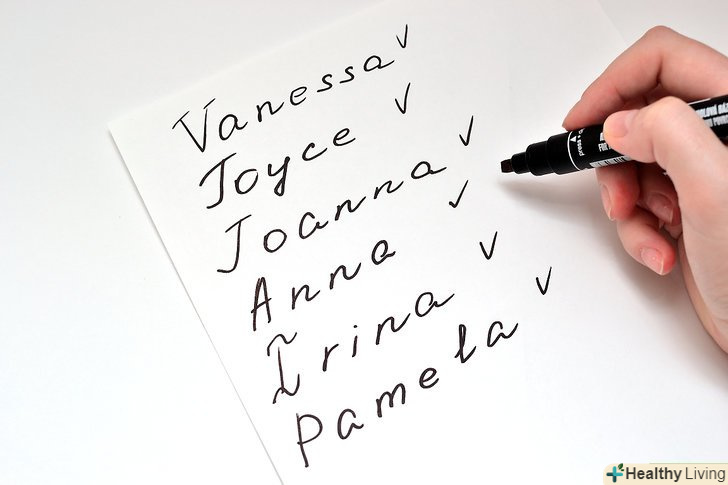 Vanessa ✓
Joyce ✓
Joanna ✓
Anna ✓
Irina ✓
Pamela ✓
Healthy Living